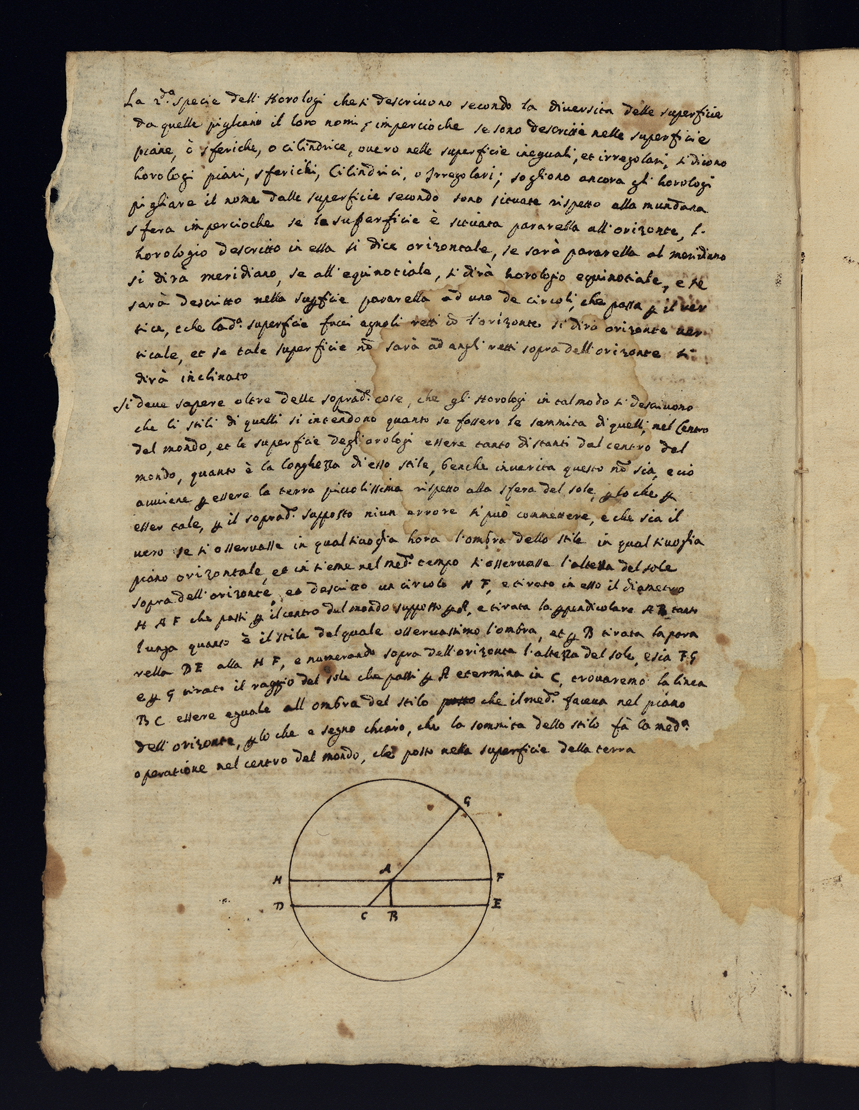 La 2.da specie dell' Horologi che si descriuono secondo la diuersita delle superficie
da quelle pigliano il loro nomi, impercioche se sono descritte nelle superficie
piane, ò sferiche, o cilindrice, ouero nelle superficie ineguali, et irregolari, si dicono
horologi piani, sferichi, Cilindrici, o Irregolari; sogliono ancora gl' horologi
pigliare il nome dalle superficie secondo sono situate rispetto alla mundana
sfera impercioche se la superficie è situata pararella all' orizonte, l'
horologio descritto in essa si dice orizontale, se sarà pararella al meridiano
si dirà meridiano, se all' equinotiale, si dirà horologio equinotiale, e se
sarà descritto nella supficie pararella ad uno de circoli, che passa p il ver
tice, e che la d.a superficie facci egnoli retti cō l'orizonte si dirà orizonte uer
ticale, et se tale superficie nō sarà ad angli retti sopra dell' orizonte si
dirà inclinato
Si deue sapere oltre delle soprad.e cose, che gl' Horologi in tal modo si descriuono
che li stili di quelli si intendono quanto se fossero le sammita di quelli, nel Centro
del mondo, et le superficie degli orologi essere tanto distanti dal centro del
mondo, quanto è la longhezza di esso stile, benche inuerita questo nō sia, e ciò
auuiene p essere la terra piccolissima rispetto alla sfera del sole, p lo che p
esser tale, p il soprad.o supposto niun errore si può commettere, e che sia il
uero se si osseruasse in qual siuoglia hora l'ombra dello stile in qual siuoglia
piano orizontale, et in sieme nel med.o tempo si osseruasse l'altezza del sole
sopra dell' orizonte, et descritto un circolo H F, e tirato in esso il diametro
H A F che passi p il centro del mondo supposto p A, e tirata la ppendicolare A B tanto
lunga quanto è il stile del quale osseruassimo l'ombra, et p B tirata la para
rella D E alla H F, e numerando sopra dell' orizonta l'altezza del sole, e sia F G
e p G tirato il raggio del sole che passi p A e termina in C, trouaremo la linea
B C essere eguale all ombra del stilo che il med.o faceua nel piano
dell' orizonte, p lo che e segno chiaro, che la sommita dello stilo fà la med.a
operatione nel centro del mondo, che posto nella superficie della terra
G
A
H F
D E
C B